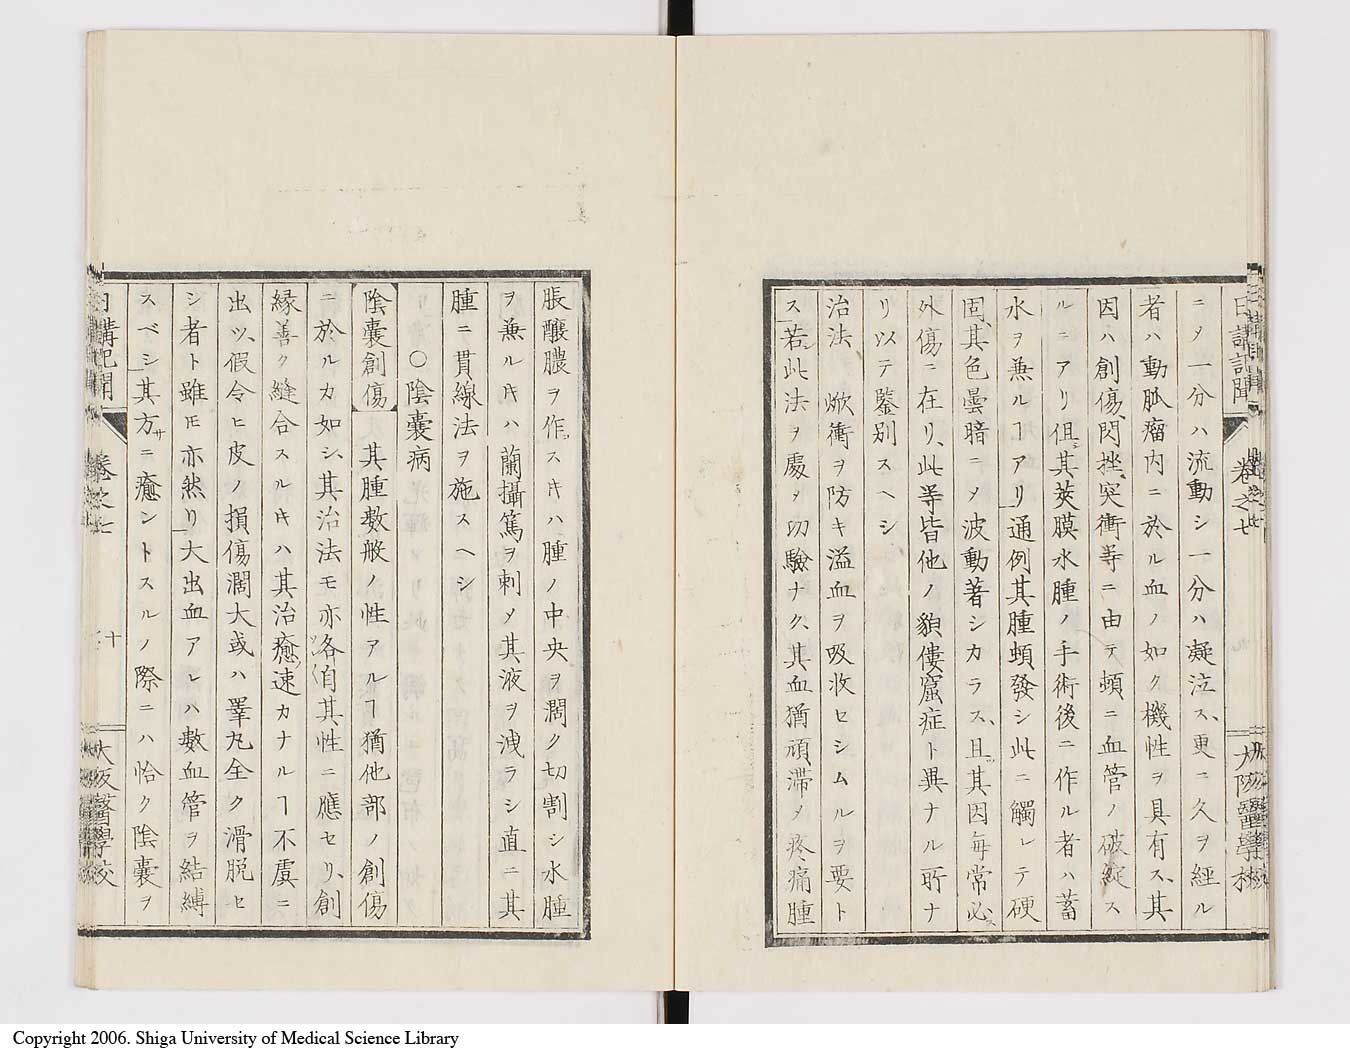 日講記聞 卷之七 大阪醫學校
ニメ一分ハ流動シ一分ハ凝泣ス、更ニ久ヲ經ル
者ハ動脈瘤内ニ於ル血ノ如ク機性ヲ具有ス、其
因ハ創傷、閃挫、突衝等ニ由テ頓ニ血管ノ破綻ス
ルニアリ但其莢膜水腫ノ手術後ニ作ル者ハ蓄
水ヲ兼ルヿアリ通例其腫頓發シ此ニ觸レテ硬
固、其色曇暗ニメ波動著シカラス、且其因毎常必ス
外傷ニ在リ、此等皆他ノ䫉僂窟症ト異ナル所ナ
リ以テ鑒別スヘシ
治法 焮衝ヲ防キ溢血ヲ吸收セシムルヲ要ト
ス若此法ヲ處メ功驗ナク、其血猶頑滯メ疼痛腫
脹醸膿ヲ作スキハ腫ノ中央ヲ濶ク切割シ水腫
ヲ兼ルキハ蘭攝篤ヲ刺メ其液ヲ洩ラシ直ニ其
腫ニ貫線法ヲ施スヘシ
〇陰囊病
陰囊創傷 其腫數般ノ性アルヿ猶他部ノ創傷
ニ於ルカ如シ、其治法モ亦各自其性ニ應セリ、創
縁善ク縫合スルキハ其治癒速カナルヿ不虞ニ
出ツ、假令ヒ皮ノ損傷濶大或ハ睪丸全ク滑脱セ
シ者ト雖モ亦然リ大出血アレハ數血管ヲ結縛
スベシ其方サニ癒ントスルノ際ニハ恰ク陰囊ヲ
日講記聞 卷之七 十 大阪醫學校